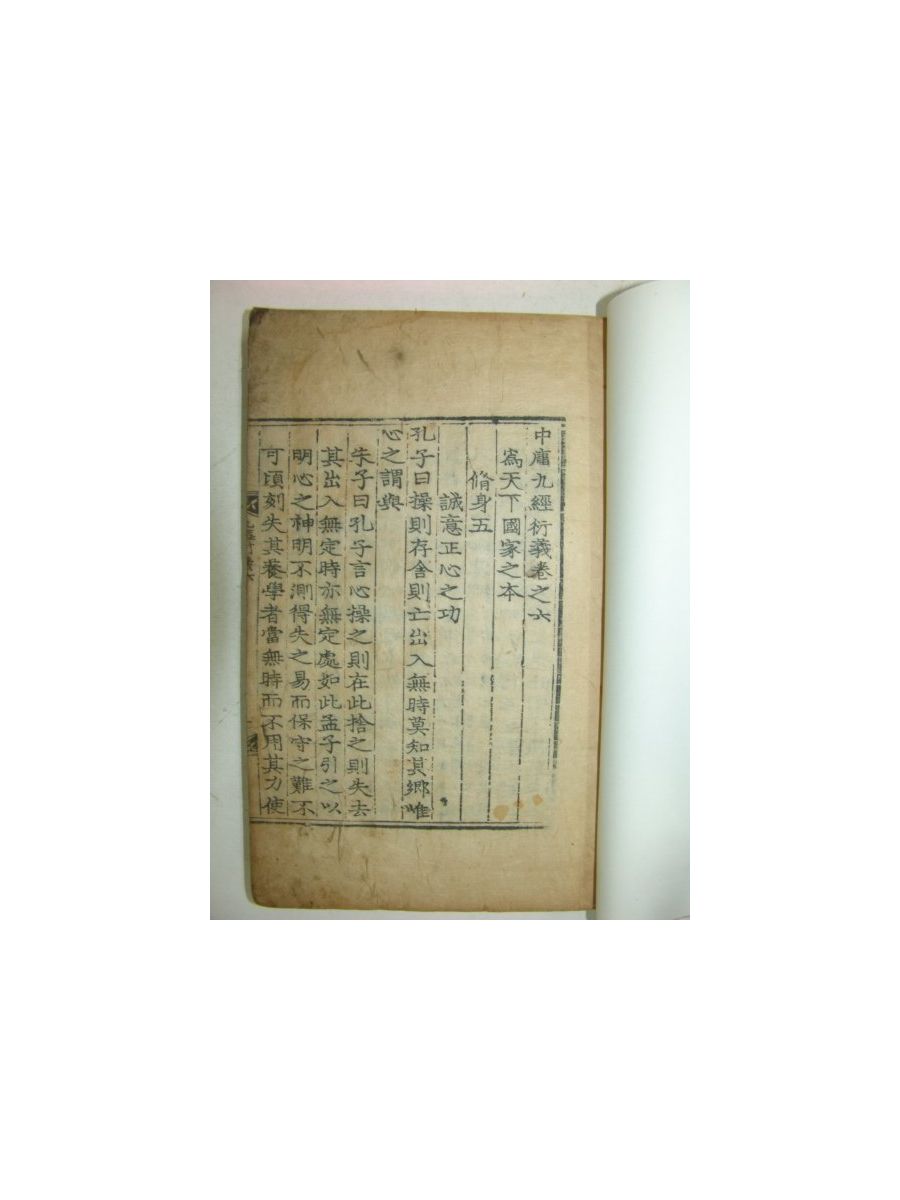 中庸九經衍義卷之六
爲天下國家之本
脩身五
誠意正心之功
孔子曰操則存舍則亡出入無時莫知其鄉惟
心之謂與
朱子曰孔子言心操之則在此捨之則失去
其出入無定時亦無定處如此孟子引之以
明心之神明不測得失之易而保守之難不
可頃刻失其養學者當無時而不用其力使